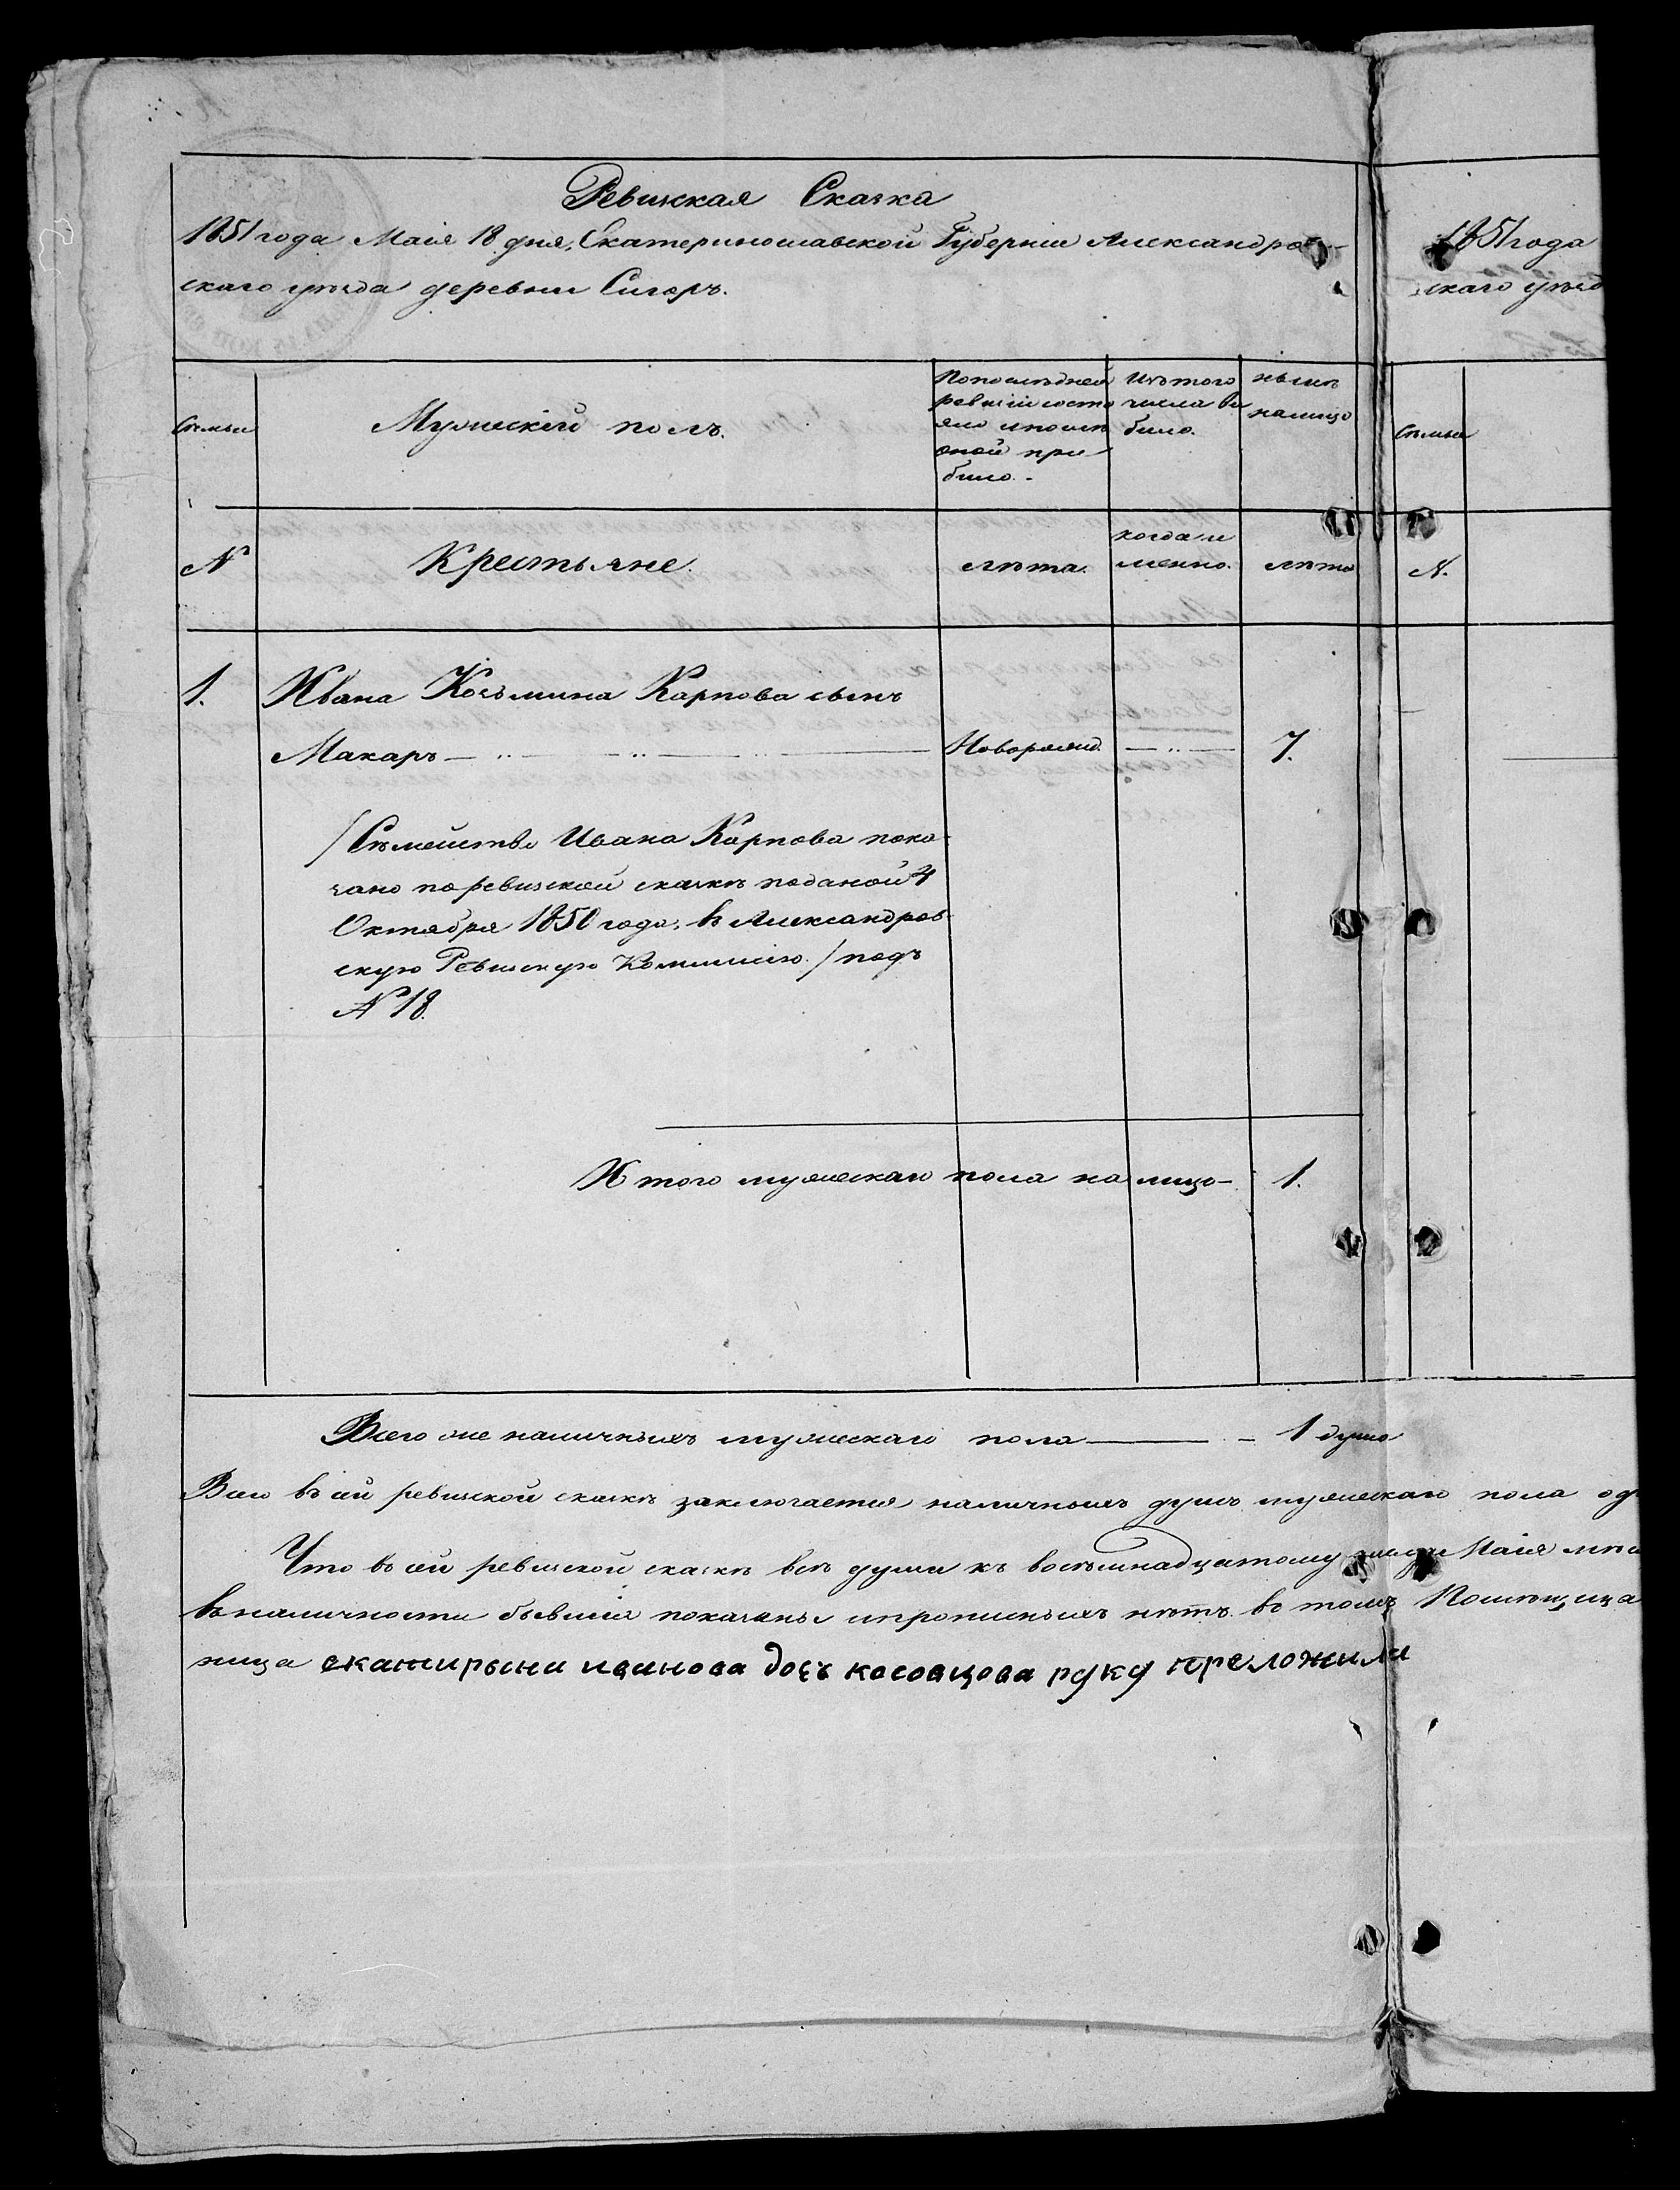 Ревижская Сказка
1851 года Маія 18 дня, Екатеринославской Губерніи Александров-
скаго уѣзда деревни Сигоръ.
1851 года
скаго уѣзд
Семьи
Мужескій полъ.
По последней
ревизіи состо
яло и после
оной при
было.-
Изъ того
числа вы
было.
нынѣ
налицо
Семьи
№
Крестьяне.
лѣта.
когда и
менно.
лѣта
№.
1.
Ивана Козьмина Карпова сынъ
Макаръ
Новорожд.
7.
/Семейство Ивана Карпова пока-
зано по ревизской сказкѣ поданой 4
Октября 1850 года, въ Александров-
скую Ревизскую Комиссію./ подъ
№ 18.
Итого мужескаго пола на лицо-
1.
Всего же наличныхъ мужескаго пола
1 душа
Всего въ сей ревизской сказкѣ заключается наличныхъ душъ мужескаго пола од
Что въ сей ревизской сказкѣ всѣ души къ восемнадцатому числу Маія мѣс
въ наличности бывшія показаны и прописныхъ нѣтъ въ томъ Помѣщица
ница екатирыни иванова дочъ косовцова руку преложила